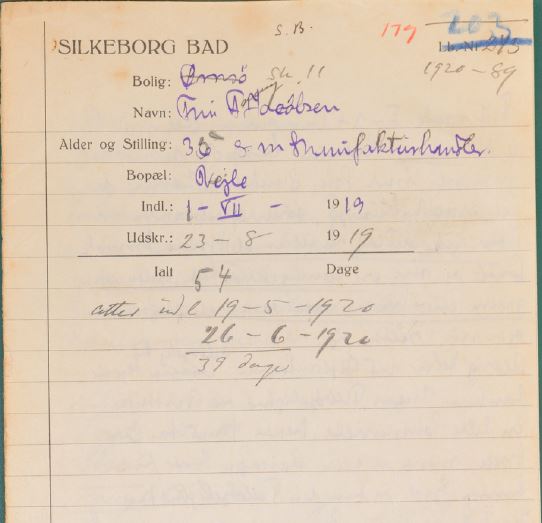 S.B. 179 203
SILKEBORG BAD Lb. Nr. 243
1920-89
Bolig: Ørnsø
Navn: Fru Jacobsen
Alder og Stilling: 36 g. m Manufakturhandler.
Bopæl: Vejle
Indl.: 1 - VII - 1919
Udskr.: 23 - 8 1919
Ialt 54 Dage
atter indl 19-5-1920
26-6-1920
39 dage